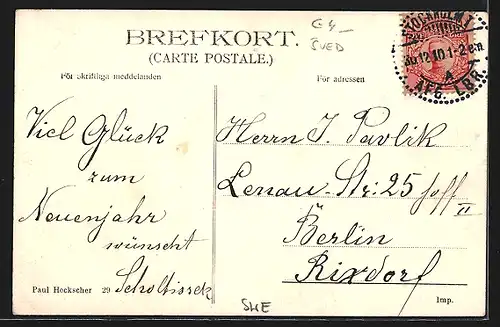 BREFKORT.
(CARTE POSTALE.)
G4-
SVED
STOCKHOLM 1
30 12 10 1-2 em
AFG. LBR.
För skriftliga meddelanden
För adressen
Viel Glück
zum
Neuenjahr
wünscht
Scholtissek
Herrn J. Pavlik
Lenau-Str: 25 hoff II
Berlin
Rixdorf
Paul Heckscher 29
Imp.
SWE